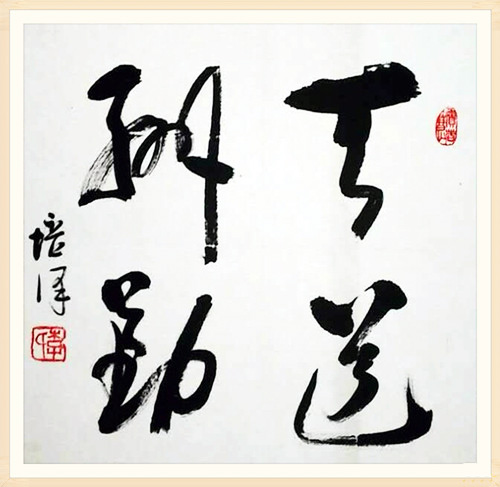 天道
酬勤
培泽